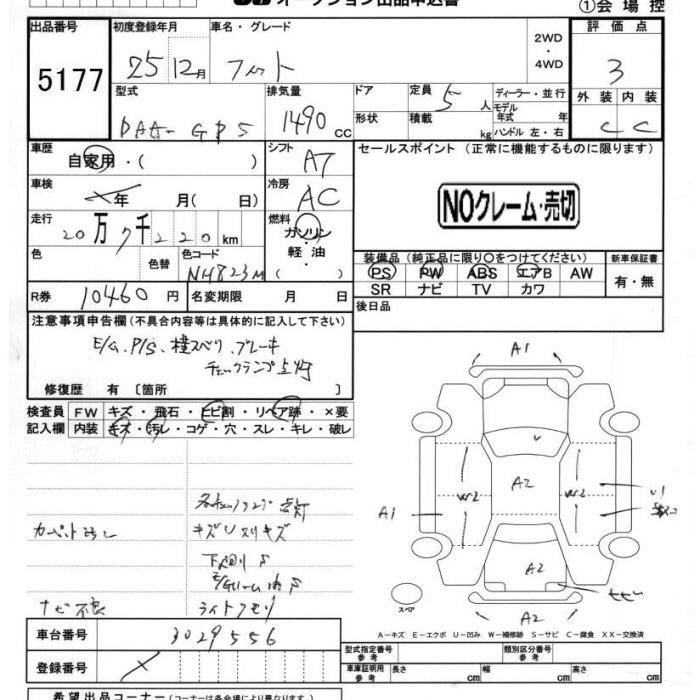 オークション出品申込書
①会場控
出品番号 初度登録年月 車名・グレード 2WD・4WD 評価点
5177 25 12月 フィット 3
型式 排気量 ドア 定員 5人 ディーラー・並行 外装 内装
DAA-GP5 1490cc 形状 積載 kg モデル年式 年 ハンドル 左・右 C C
車歴 自家用・( ) シフト AT セールスポイント (正常に機能するものに限ります)
車検 年 月(日) 冷房 AC NOクレーム・売切
走行 20万7千220km 燃料 ガソリン・軽・油 ( )
装備品 (純正品に限り○をつけてください) 新車保証書
色 色替 色コード NH823M PS PW ABS エアB AW 有・無
SR ナビ TV カワ
R券 10460円 名変期限 月 日 後日品
注意事項申告欄 (不具合内容等は具体的に記入して下さい)
E/G、P/S、横スベリ、ブレーキ
チェックランプ点灯
修復歴 有 [箇所 ]
検査員 FW キズ・飛石・ヒビ割・リペア跡・×要
記入欄 内装 キズ・汚レ・コゲ・穴・スレ・キレ・破レ
キズU
ナビ不良
A1
A2
W2 W2
A1 U1
A2
A2
スペア
A-キズ E-エクボ U-凹み W-補修跡 S-サビ C-腐食 XX-交換済
車台番号 3029556
登録番号
型式指定番号 参考 類別区分番号 参考
車庫証明用 参考 長さ cm 幅 cm 高さ cm
希望出品コーナー (コーナーは各会場により異なります。)